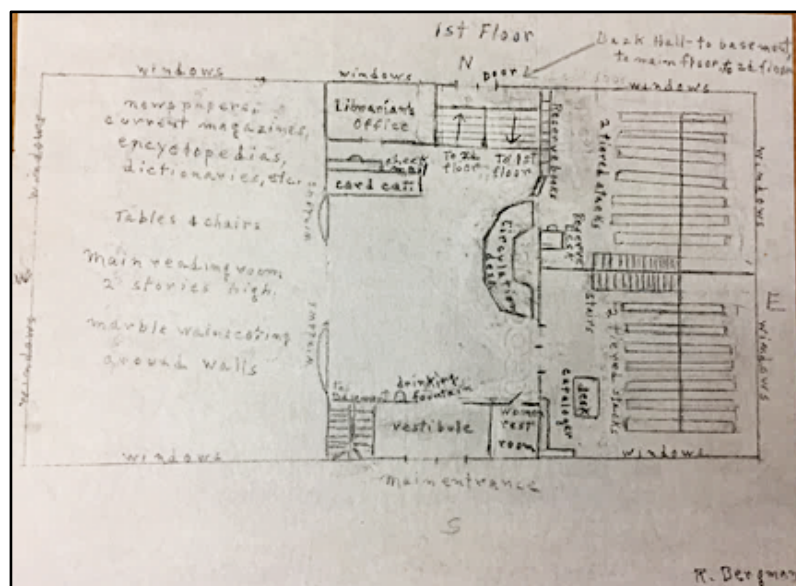 1st Floor
N
Back Hall-to basement,
to main floor, to 2d floor
windows
windows
Door
windows
newspapers,
current magazines,
encyclopedias,
dictionaries, etc.
Tables & chairs
Main reading room
2 stories high.
marble wainscoting
around walls
windows
windows
Librarian's
Office
check
card cat.
To 2d
floor
To 1st
floor
Reserve books
Circulation
desk
Reserve
desk
2 tiered stacks
stairs
2 tiered stacks
windows
E
windows
to
basement
drinking
fountain
vestibule
women
rest
room
desk
cataloger
windows
windows
main entrance
S
R. Bergman